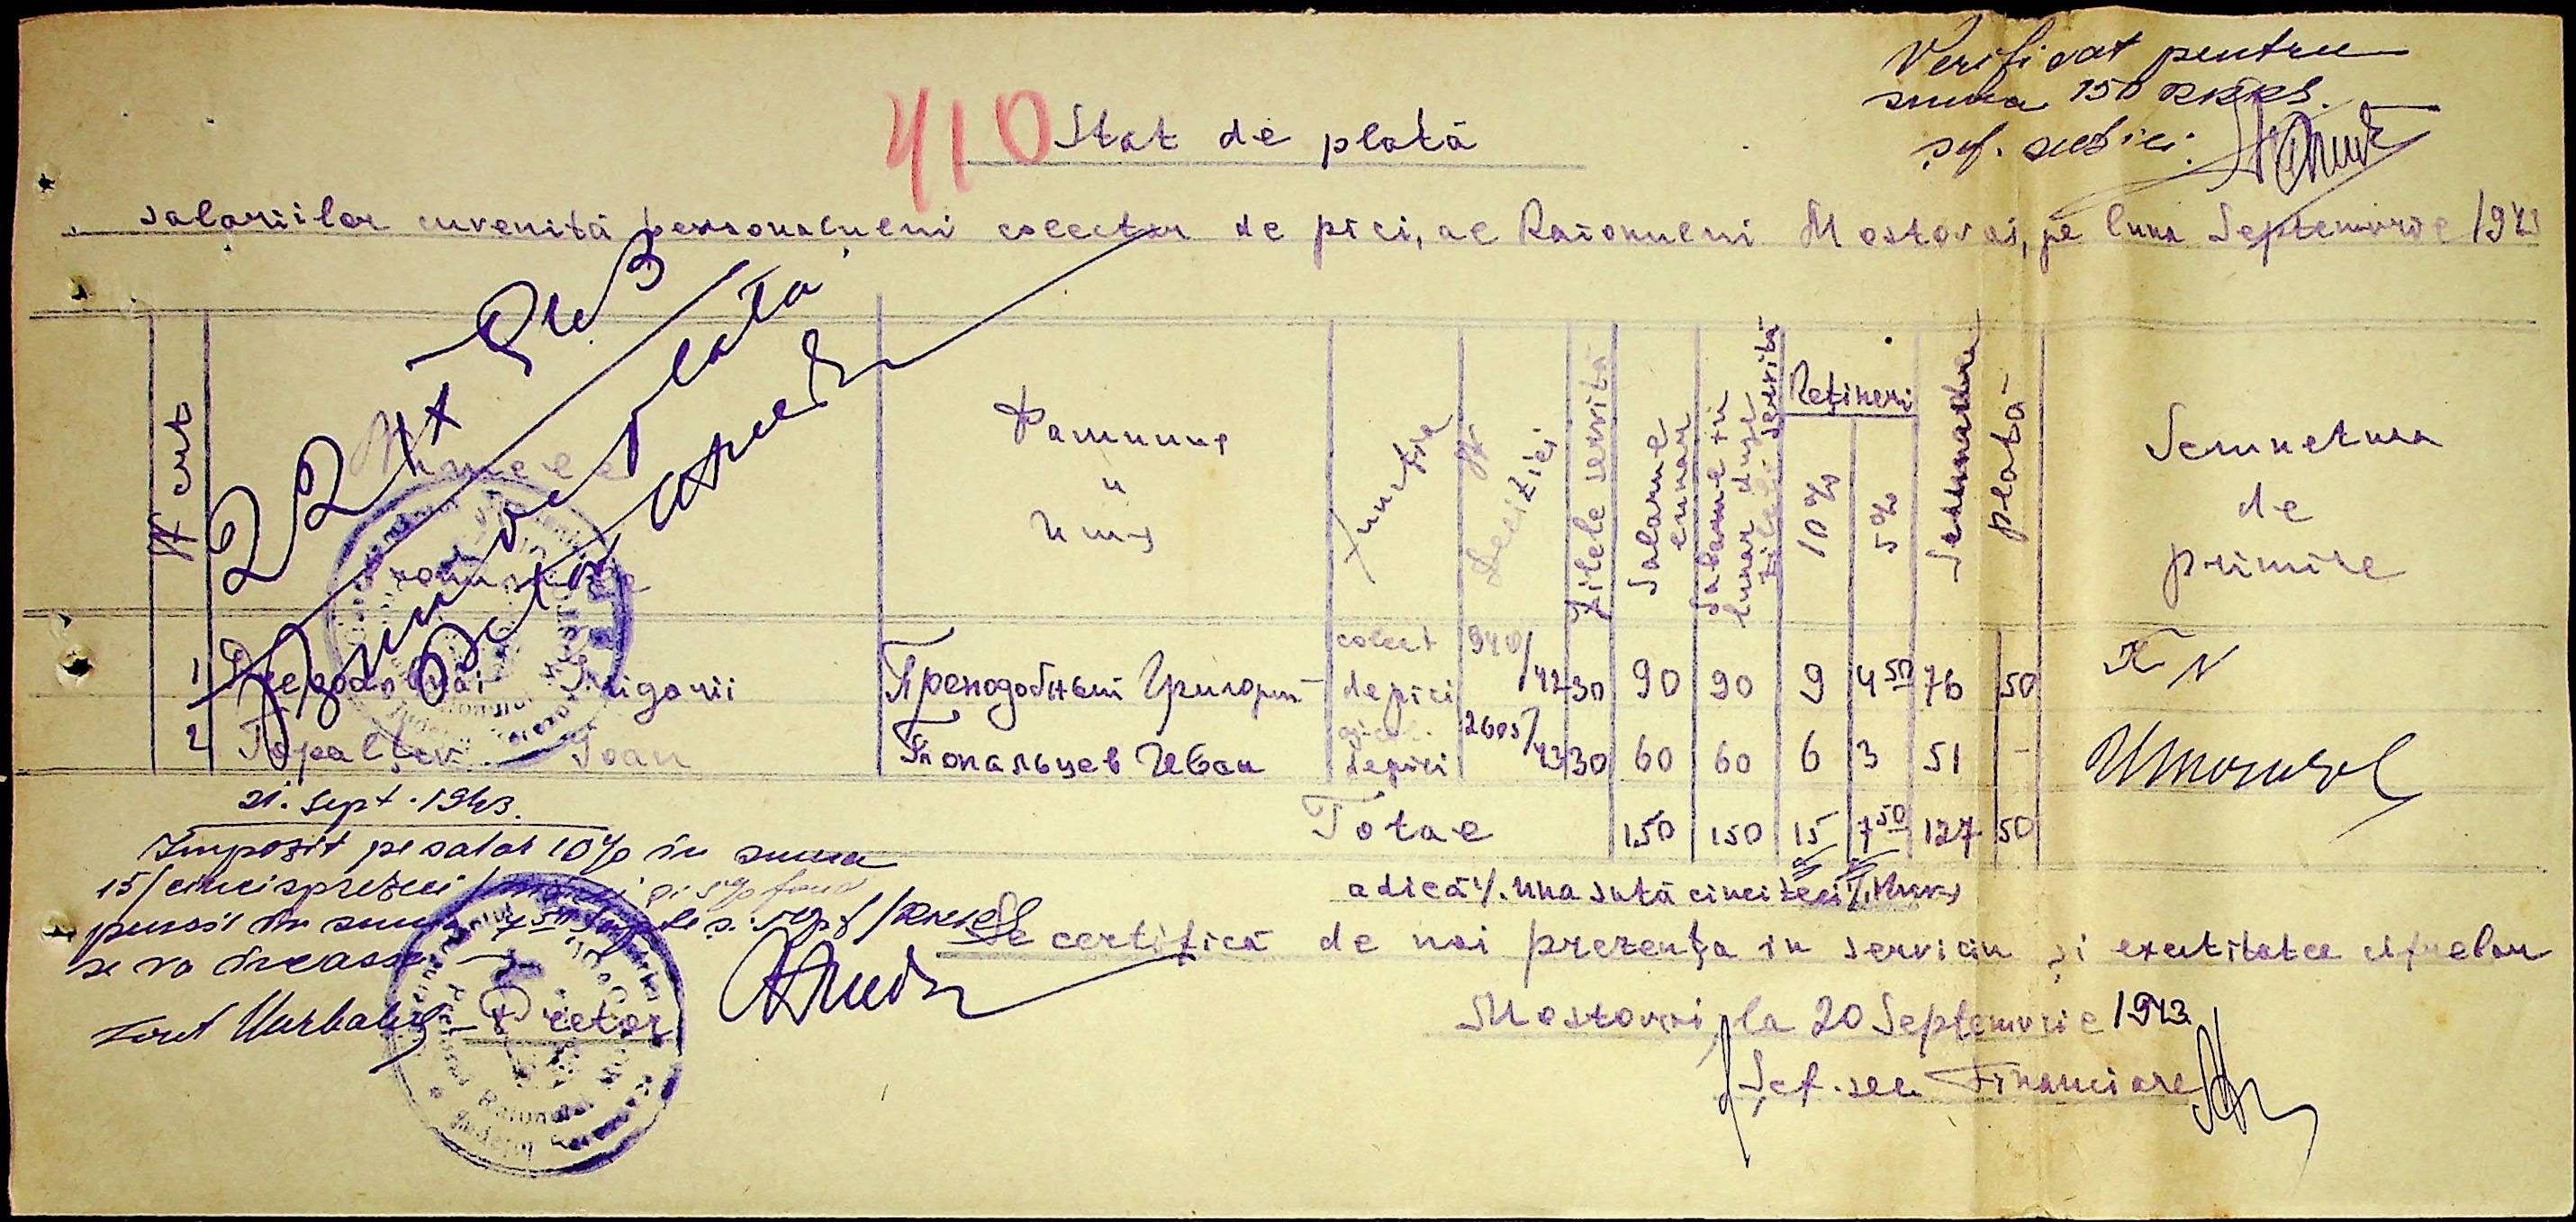 Verificat pentru
suma 150 RKKS.
șef. secției.
410 Stat de plată
salariilor cuvenită personalului colector de piei, al Raionului Mostovoi, pe luna Septemvrie 1943
22 IX
Bun de plată
Pretor
N crt
Numele
Pronumele
Фамилия
и
имя
Funcția
N Deciziei
Zilele servite
Salariul lunar
Salariul lunar după zilele servite
Rețineri
10%
5%
Suma de plată
Semnetura
de
primire
1 Prepodobnâi Grigorii Преподобный Григорий colect de piei 940/42 30 90 90 9 4 50 76 50
2 Topalțev Ioan Топальцев Иван de piei 2605/43 30 60 60 6 3 51 -
Total 150 150 15 7 50 127 50
21. Sept. 1943.
Impozit pe salar 10% în suma
15/cincisprezeci/ și 5% fond
pensii în suma 7 50
se va încassa
adică /. una sută cinci zeci /.
Se certifică de noi prezența in serviciu și exactitatea cifrelor
Mostovoi, la 20 Septemvrie 1943
Pretor
Șef. sec Financiare